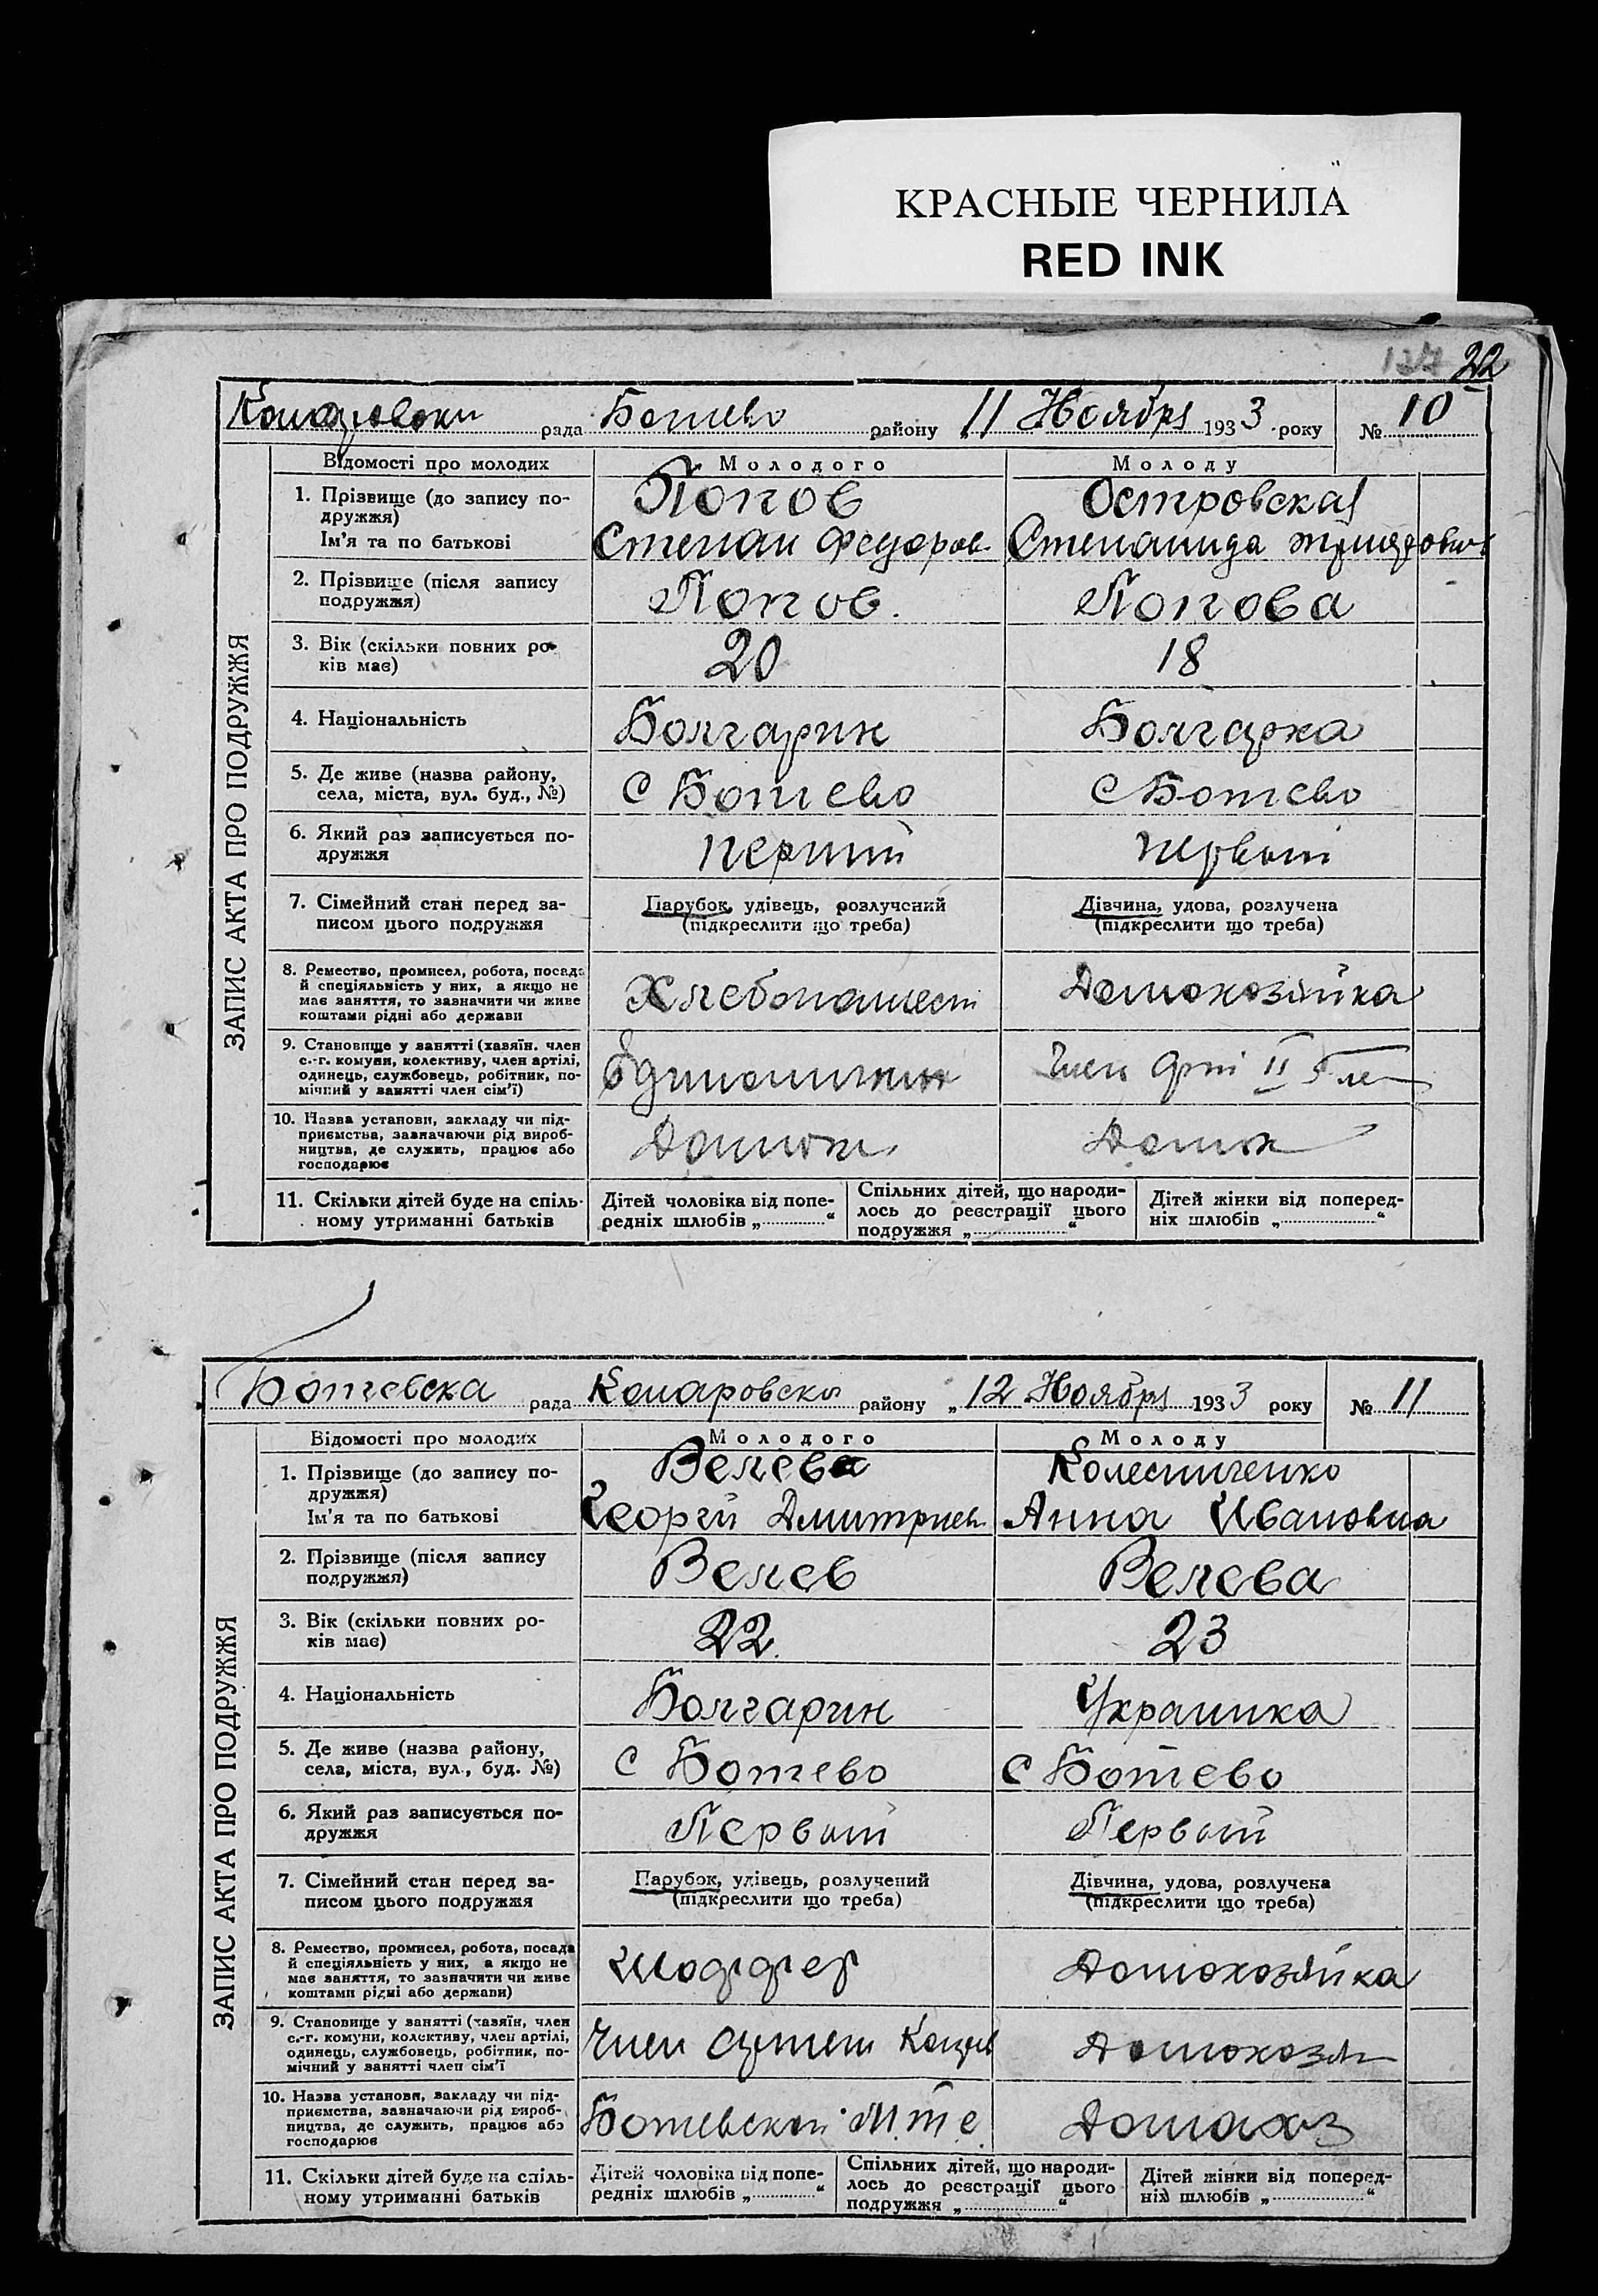 КРАСНЫЕ ЧЕРНИЛА
RED INK
22
рада Ботево району „ 11 Ноября 1933 року № 10
ЗАПИС АКТА ПРО ПОДРУЖЖЯ
Відомості про молодих Молодого Молоду
1. Прізвище (до запису по- Попов Островская
дружжя)
Ім'я та по батькові Степан Федоров Степанида
2. Прізвище (після запису Попов. Попова
подружжя)
3. Вік (скільки повних ро- 20 18
ків має)
4. Національність Болгарин Болгарка
5. Де живе (назва району, С Ботево С Ботево
села, міста, вул. буд., №)
6. Який раз записується по- первый
дружжя
7. Сімейний стан перед за- Парубок, удівець, розлучений Дівчина, удова, розлучена
писом цього подружжя (підкреслити що треба) (підкреслити що треба)
8. Ремество, промисел, робота, посада Домохозяйка
й спеціяльність у них, а якщо не
має заняття, то зазначити чи живе
коштами рідні або держави
9. Становище у занятті (хазяїн, член Член
с.-г. комуни, колективу, член артілі,
одинець, службовець, робітник, по-
мічний у занятті член сім'ї)
10. Назва установи, закладу чи під-
приємства, зазначаючи рід вироб-
ництва, де служить, працює або
господарює
11. Скільки дітей буде на спіль- Дітей чоловіка від попе- Спільних дітей, що народи- Дітей жінки від поперед-
ному утриманні батьків редніх шлюбів „.......“ лось до реєстрації цього ніх шлюбів „.......“
подружжя „.......“
Ботевска рада Комаровски району „12 Ноября 1933 року № 11
ЗАПИС АКТА ПРО ПОДРУЖЖЯ
Відомості про молодих Молодого Молоду
1. Прізвище (до запису по- Велева Колесниченко
дружжя)
Ім'я та по батькові Георгій Дмитриев Анна Ивановна
2. Прізвище (після запису Велев Велева
подружжя)
3. Вік (скільки повних ро- 22 23
ків має)
4. Національність Болгарин Украинка
5. Де живе (назва району, С Ботево С Ботево
села, міста, вул., буд. №)
6. Який раз записується по- Первый Первый
дружжя
7. Сімейний стан перед за- Парубок, удівець, розлучений Дівчина, удова, розлучена
писом цього подружжя (підкреслити що треба) (підкреслити що треба)
8. Ремество, промисел, робота, посада шоффер Домохозяйка
й спеціяльність у них, а якщо не
має заняття, то зазначити чи живе
коштами рідні або держави)
9. Становище у занятті (хазяїн, член Член Домохозяй
с.-г. комуни, колективу, член артілі,
одинець, службовець, робітник, по-
мічний у занятті член сім'ї
10. Назва установи, закладу чи під- Ботевской М.т.с. Домахоз
приємства, зазначаючи рід вироб-
ництва, де служить, працює або
господарює
11. Скільки дітей буде на спіль- Дітей чоловіка від попе- Спільних дітей, що народи- Дітей жінки від поперед-
ному утриманні батьків редніх шлюбів „.......“ лось до реєстрації цього ніх шлюбів „.......“
подружжя „.......“